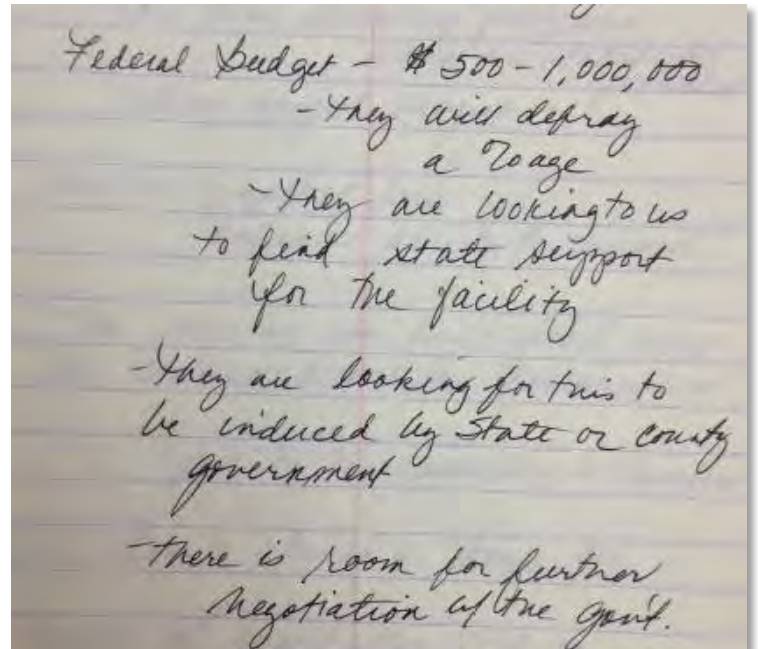 Federal Budget - $500-1,000,000
- They will defray
a %age
- They are looking to us
to find state support
for the facility
- They are looking for this to
be induced by State or county
government
- There is room for further
negotiation w/ the gov't.